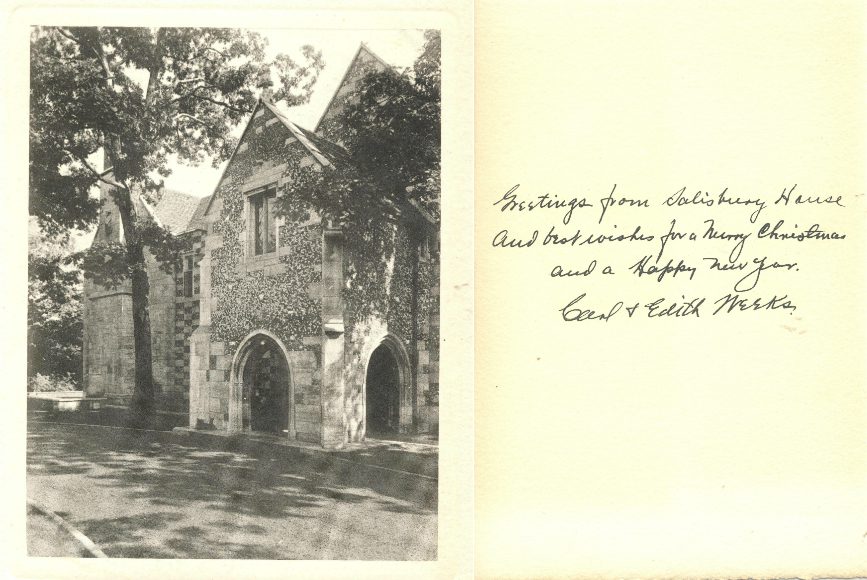 Greetings from Salisbury House
And best wishes for a Merry Christmas
and a Happy New Year.
Carl & Edith Weeks.